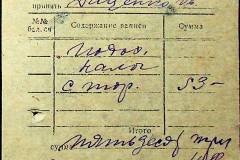 принять
№№ бал. сч
Содержание записи
Сумма
подох.
налог
с тор.
53-
Итого
пятьдесят три